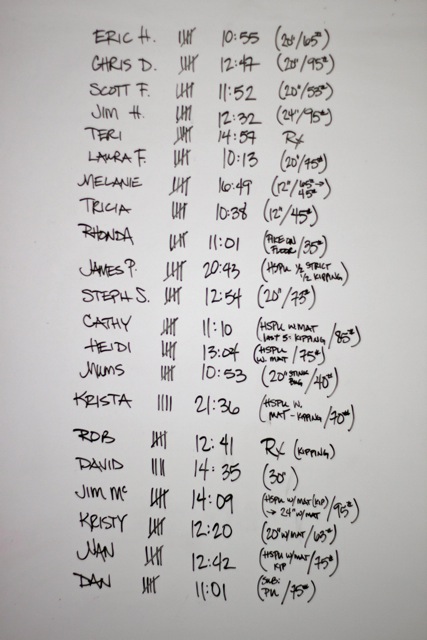 ERIC H. 卌 10:55 (20"/65#)
CHRIS D. 卌 12:47 (20"/95#)
SCOTT F. 卌 11:52 (20"/53#)
JIM H. 卌 12:32 (24"/95#)
TERI 卌 14:57 Rx
LAURA F. 卌 10:13 (20"/75#)
MELANIE 卌 16:49 (12"/65#→ 45#)
TRICIA 卌 10:38 (12"/45#)
RHONDA 卌 11:01 (PIKE ON FLOOR/35#)
JAMES P. 卌 20:43 (HSPU 1/2 STRICT 1/2 KIPPING)
STEPH S. 卌 12:54 (20"/75#)
CATHY 卌 11:10 (HSPU W. MAT LAST 5: KIPPING/85#)
HEIDI 卌 13:04 (HSPU W. MAT/75#)
MUMS 卌 10:53 (20" BAG/40#)
KRISTA |||| 21:36 (HSPU W. MAT - KIPPING/70#)
ROB 卌 12:41 Rx (KIPPING)
DAVID |||| 14:35 (30")
JIM Mc 卌 14:09 (HSPU W/MAT (KIP) → 24" W/MAT/95#)
KRISTY 卌 12:20 (20" W/MAT/63#)
NAN 卌 12:42 (HSPU W/MAT KIP/75#)
DAN 卌 11:01 (SUB: PU/75#)